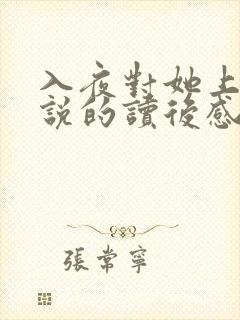 入夜對她上
說的讀後感
張常寧